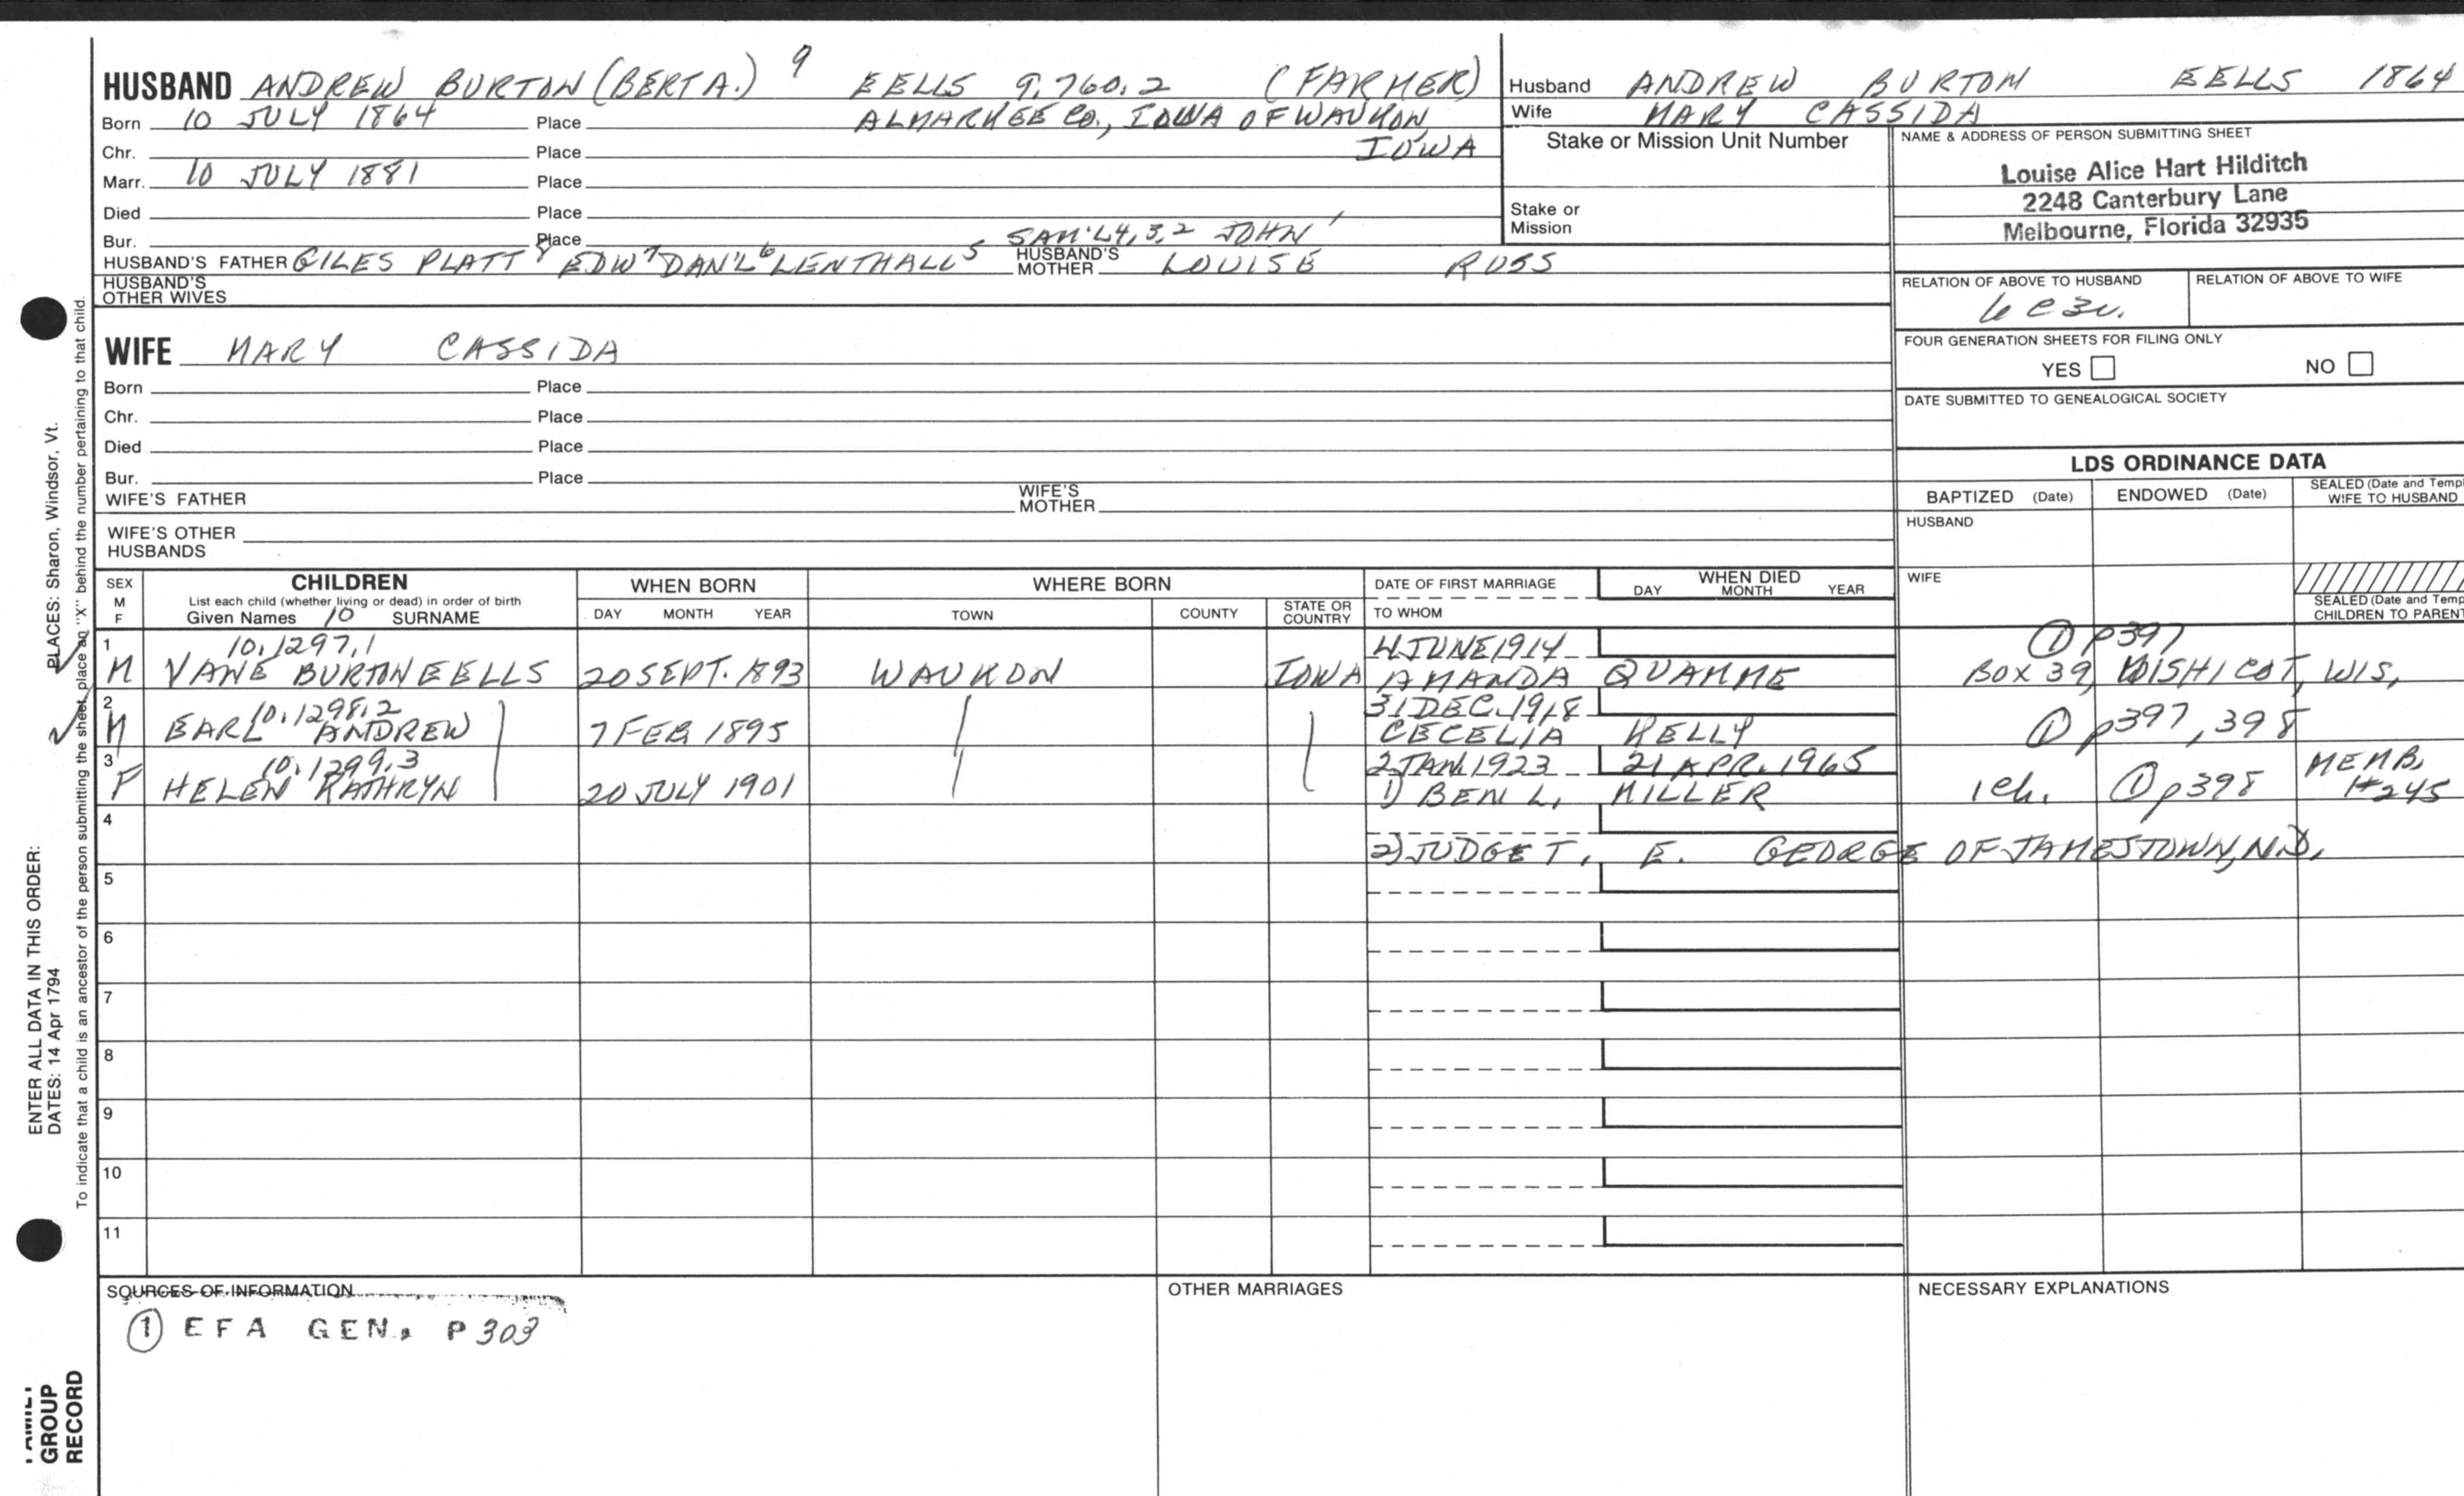 HUSBAND ANDREW BURTON (BERT A.) 9 EELLS 9,760,2 (FARMER)
Born 10 JULY 1864 Place ALMARKEE CO., IOWA OF WAUKON,
Chr. Place IOWA
Marr. 10 JULY 1881 Place
Died Place
Bur. Place SAM'L 4,3,2 JOHN 1
HUSBAND'S FATHER GILES PLATT 8 EDW 7 DAN'L 6 LENTHALL 5 HUSBAND'S MOTHER LOUISE ROSS
HUSBAND'S OTHER WIVES
Husband ANDREW BURTON EELLS 1864
Wife MARY CASSIDA
Stake or Mission Unit Number
Stake or Mission
NAME & ADDRESS OF PERSON SUBMITTING SHEET
Louise Alice Hart Hilditch
2248 Canterbury Lane
Melbourne, Florida 32935
RELATION OF ABOVE TO HUSBAND RELATION OF ABOVE TO WIFE
FOUR GENERATION SHEETS FOR FILING ONLY
YES NO
DATE SUBMITTED TO GENEALOGICAL SOCIETY
WIFE MARY CASSIDA
Born Place
Chr. Place
Died Place
Bur. Place
WIFE'S FATHER WIFE'S MOTHER
WIFE'S OTHER HUSBANDS
LDS ORDINANCE DATA
BAPTIZED (Date) ENDOWED (Date) SEALED (Date and Templ WIFE TO HUSBAND
HUSBAND
WIFE
SEALED (Date and Temp CHILDREN TO PARENT
SEX M F CHILDREN WHEN BORN WHERE BORN DATE OF FIRST MARRIAGE WHEN DIED
List each child (whether living or dead) in order of birth
Given Names 10 SURNAME DAY MONTH YEAR TOWN COUNTY STATE OR COUNTRY TO WHOM DAY MONTH YEAR
1 10,1297,1 4 JUNE 1914 ① p397
M VANE BURTON EELLS 20 SEPT. 1893 WAUKON IOWA AMANDA QUAMME BOX 39, MISHICOT, WIS,
2 10,1298,2 31 DEC. 1918
M EARL ANDREW 7 FEB 1895 CECELIA KELLY ① p397, 398
3 10,1299,3 2 JAN. 1923 21 APR. 1965 MEMB.
F HELEN KATHRYN 20 JULY 1901 1) BEN L. MILLER 1 ch. ① p398 #245
4
2) JUDGE T. E. GEORGE OF JAMESTOWN, N.D.
5
6
7
8
9
10
11
SOURCES OF INFORMATION OTHER MARRIAGES NECESSARY EXPLANATIONS
① EFA GEN. P 303
ENTER ALL DATA IN THIS ORDER:
DATES: 14 Apr 1794 PLACES: Sharon, Windsor, Vt.
To indicate that a child is an ancestor of the person submitting the sheet, place an "X" behind the number pertaining to that child.
GROUP
RECORD